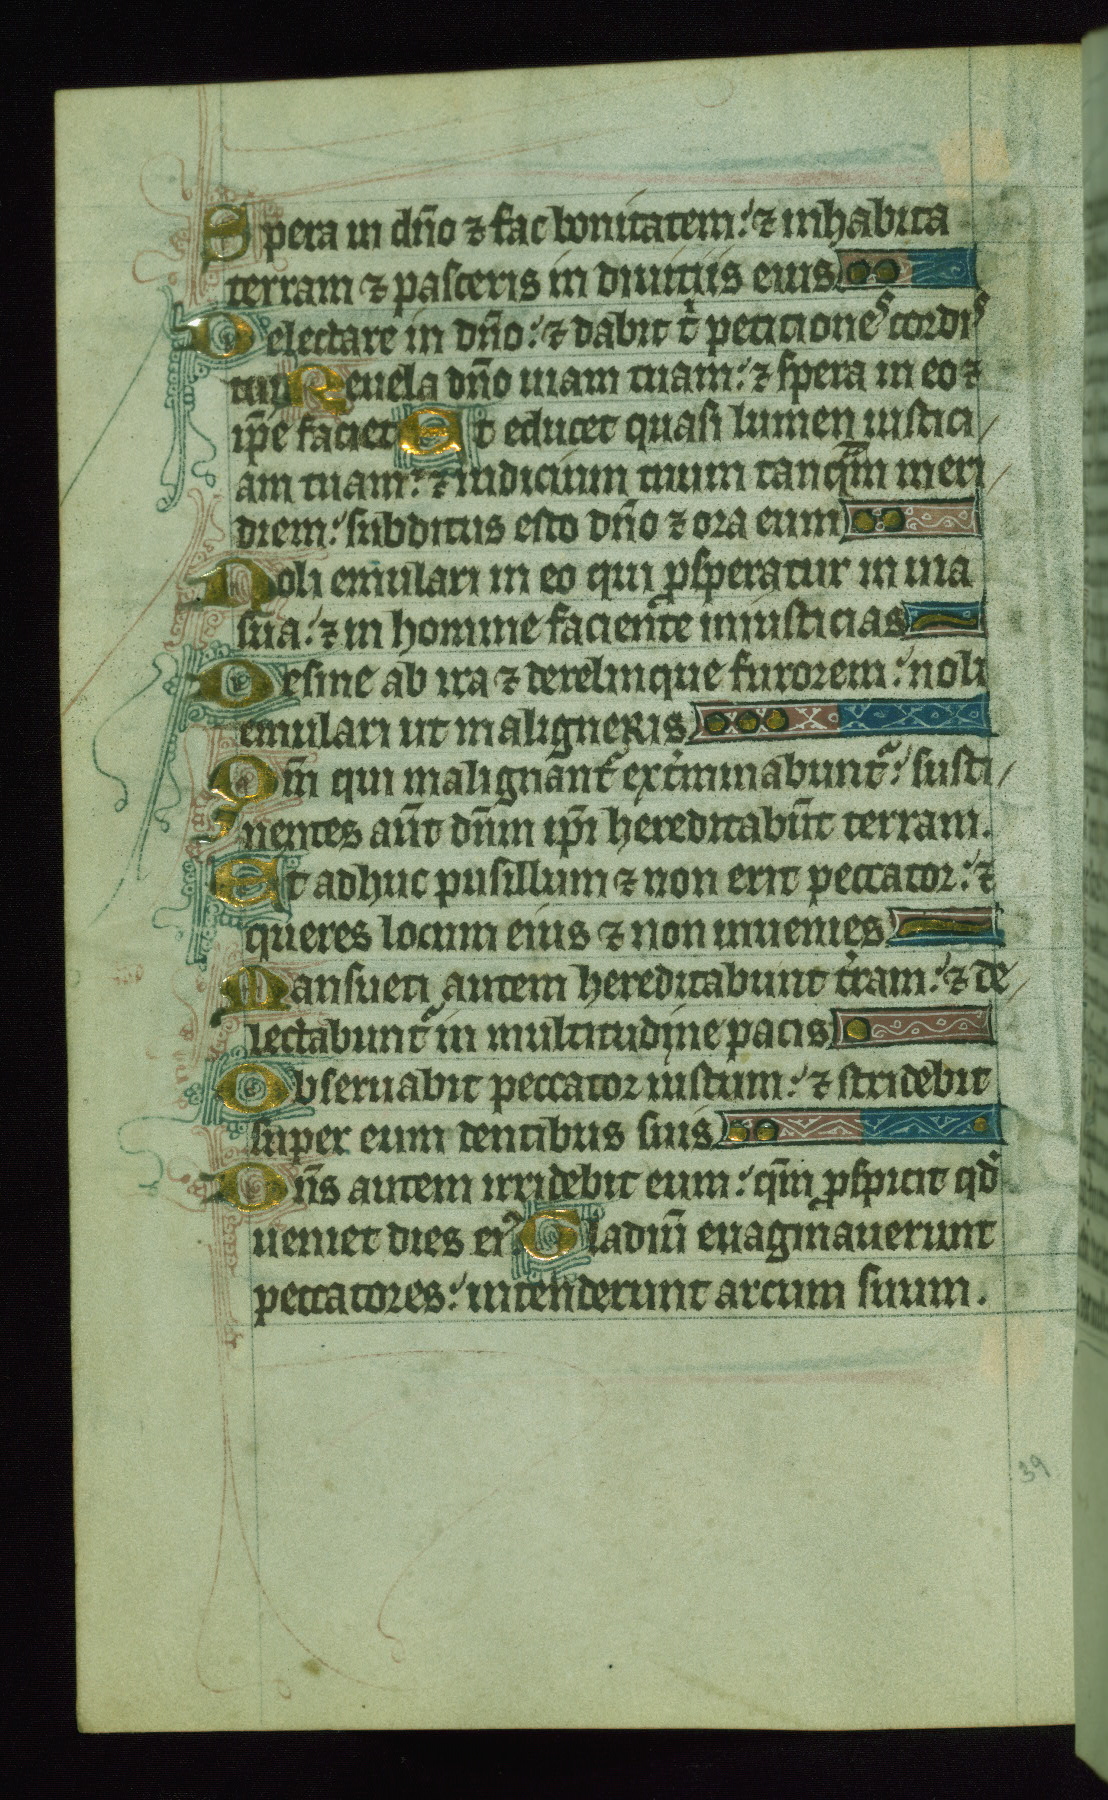 Spera in dño ⁊ fac bonitatem: ⁊ inhabita
terram ⁊ pasceris in diuitiis eius
Delectare in dño: ⁊ dabit tⁱ peticiones cordis
tui Reuela dño uiam tuam: ⁊ spera in eo ⁊
ip̄e faciet Et educet quasi lumen iustici
am tuam: ⁊ iudicium tuum tanq̄m meri
diem: subditus esto dño ⁊ ora eum
Noli emulari in eo qui ꝓsperatur in uia
sua: ⁊ in homine faciente iniusticias
Desine ab ira ⁊ derelinque furorem: noli
emulari ut maligneris
Qm̄ qui malignant᷑ ext͛minabunt᷑: susti
nentes aūt dn̄m ip̄i hereditabūt terram.
Et adhuc pusillum ⁊ non erit peccator: ⁊
queres locum eius ⁊ non inuenies
Mansueti autem hereditabunt t͛ram: ⁊ de
lectabunt᷑ in multitudine pacis
Obseruabit peccator iustum: ⁊ stridebit
super eum dentibus suis
Dn̄s autem irridebit eum: qm̄ ꝓspicit qd̓
ueniet dies ei᷒ Gladiū euaginauerunt
peccatores: intenderunt arcum suum.
39